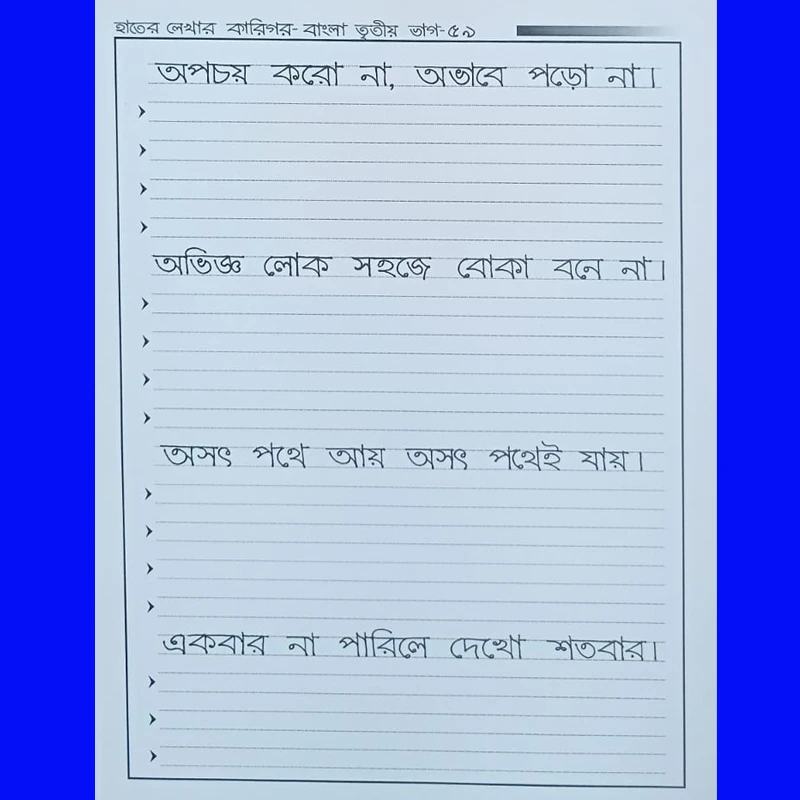 হাতের লেখার কারিগর- বাংলা তৃতীয় ভাগ-৫৯
অপচয় করো না, অভাবে পড়ো না।
অভিজ্ঞ লোক সহজে বোকা বনে না।
অসৎ পথে আয় অসৎ পথেই যায়।
একবার না পারিলে দেখো শতবার।